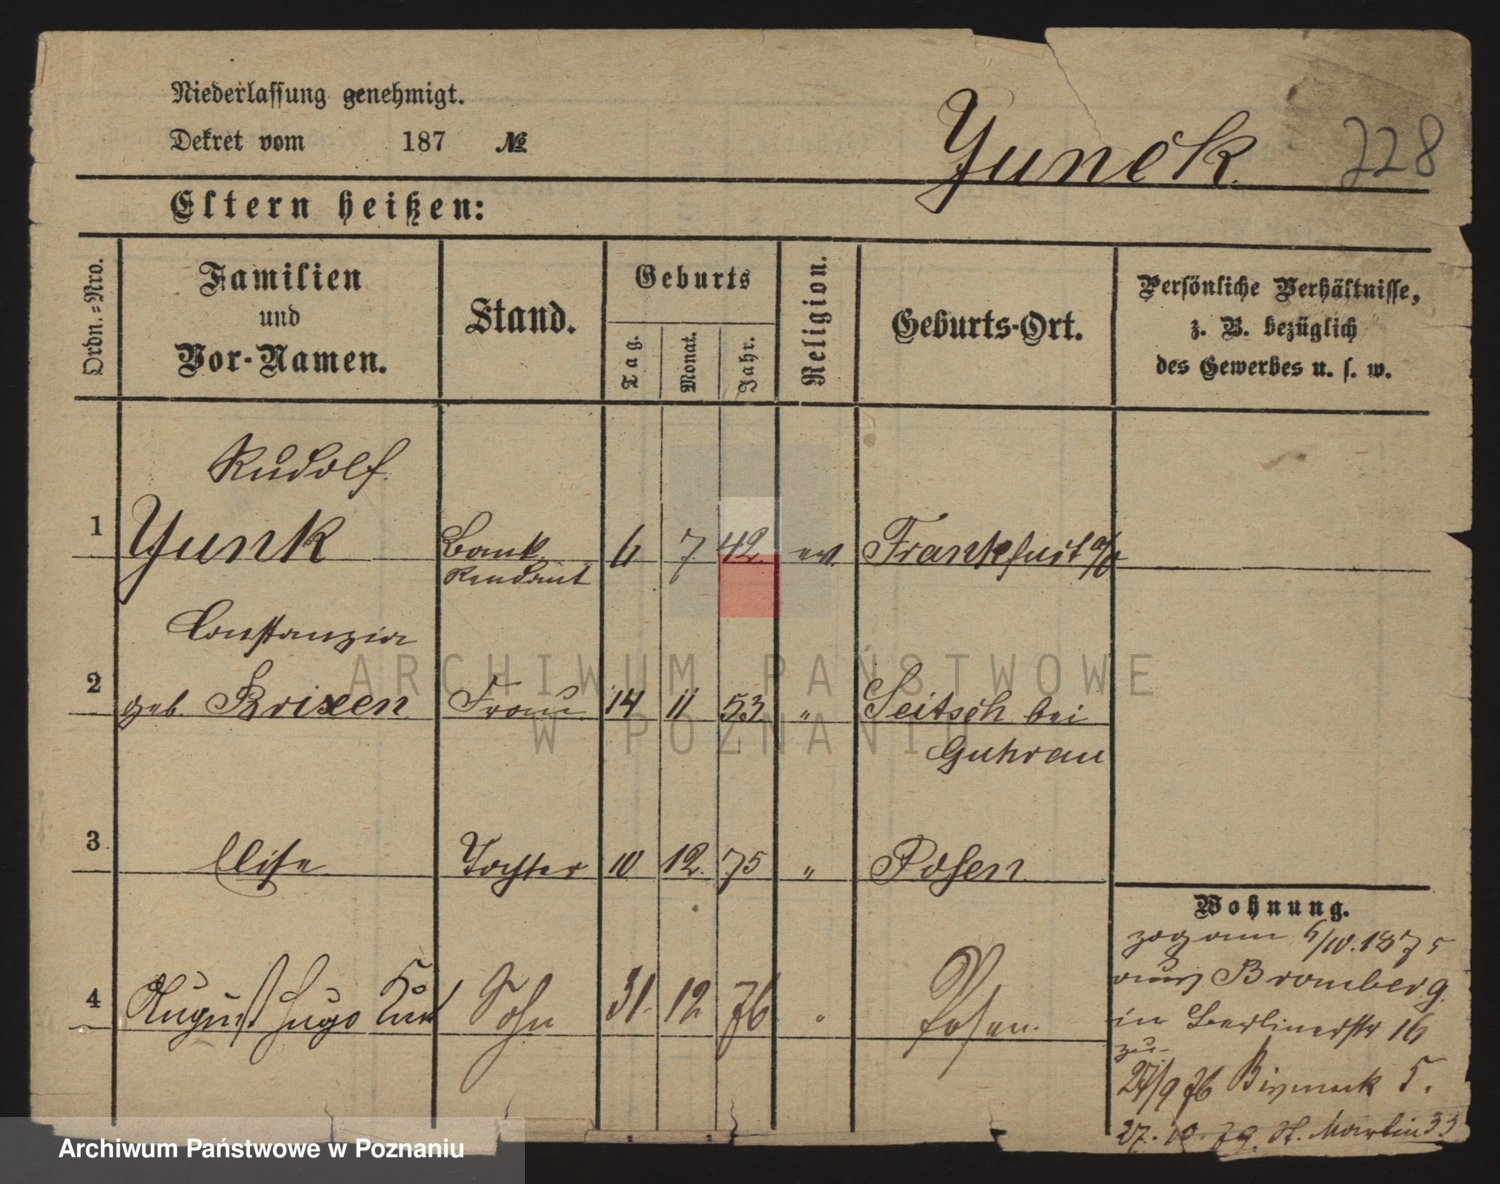 Niederlassung genehmigt.
Dekret vom 187 №
Yunck.
228
Eltern heißen:
Ordn.=Nro.
Familien
und
Vor-Namen.
Stand.
Geburts
Tag.
Monat.
Jahr.
Religion.
Geburts-Ort.
Persönliche Verhältnisse,
z. B. bezüglich
des Gewerbes u. s. w.
Rudolf.
1 Yunk Bank 6 7 42. ev. Frankfurt a/O
Rendant
Constanzia
2 geb. Brixen Frau 14 11 53 " Seitsch bei
Guhrau
3 Elise Tochter 10 12. 75 " Posen
4 August Hugo Kurt Sohn 31. 12 76 " Posen.
Wohnung.
zog am 6/10.1875
aus Bromberg.
in Berlinerstr 16
zu
27/9 76 Bismark 5.
27. 10. 79. St. Martin 33
ARCHIWUM PAŃSTWOWE
W POZNANIU
Archiwum Państwowe w Poznaniu